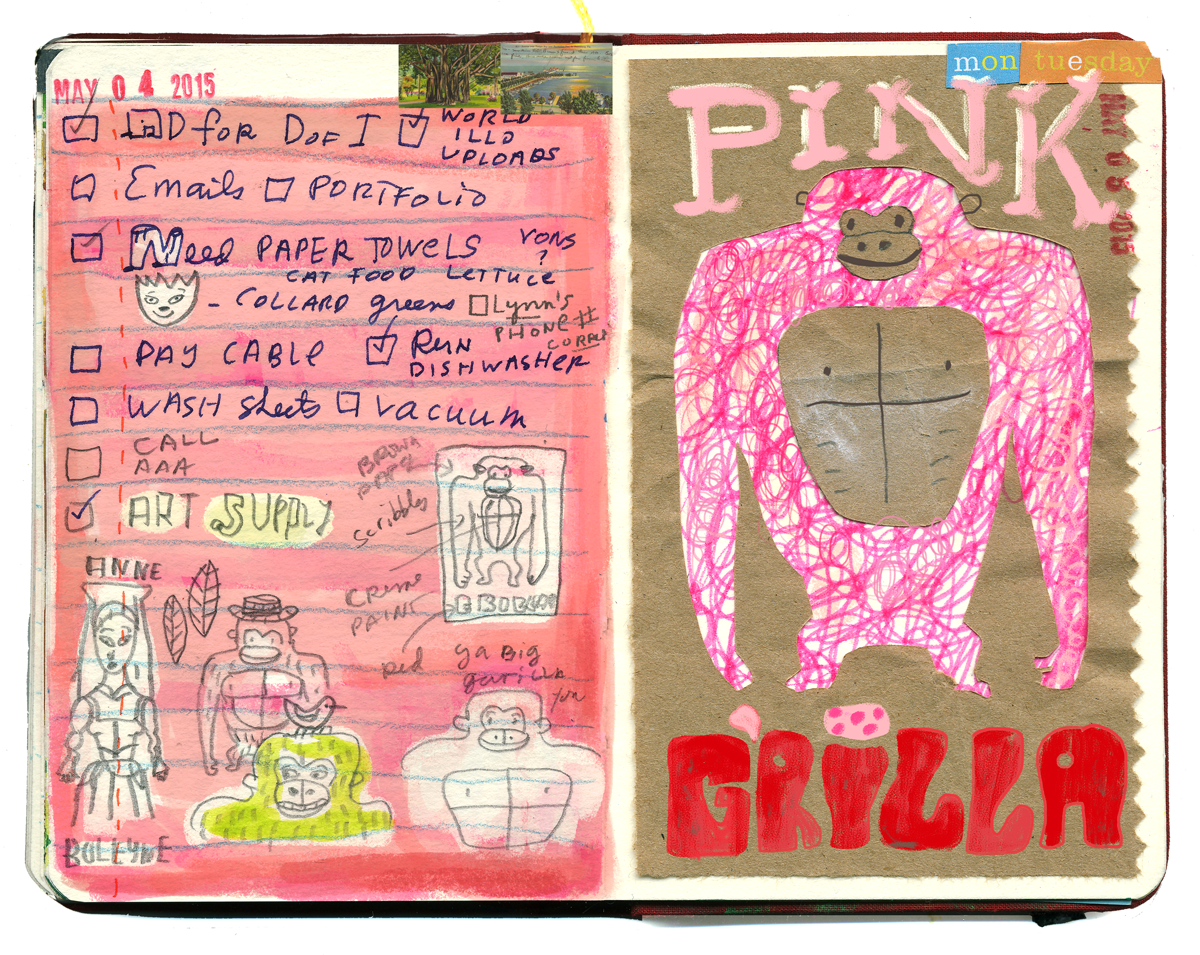 MAY 04 2015
D for DOF I
WORLD
ILLO
UPLOADS
Emails PORTFOLIO
Need PAPER TOWELS
VONS
?
CAT FOOD LETTUCE
- COLLARD greens
Lynn's
PHONE #
PAY CABLE
RUN
DISHWASHER
WASH sheets vacuum
CALL
AAA
ART SUPPLY
BROWN
scribbles
CREME
PAINT
Red
ya BIG
ANNE
mon tuesday
MAY 05 2015
PINK
GRILLA